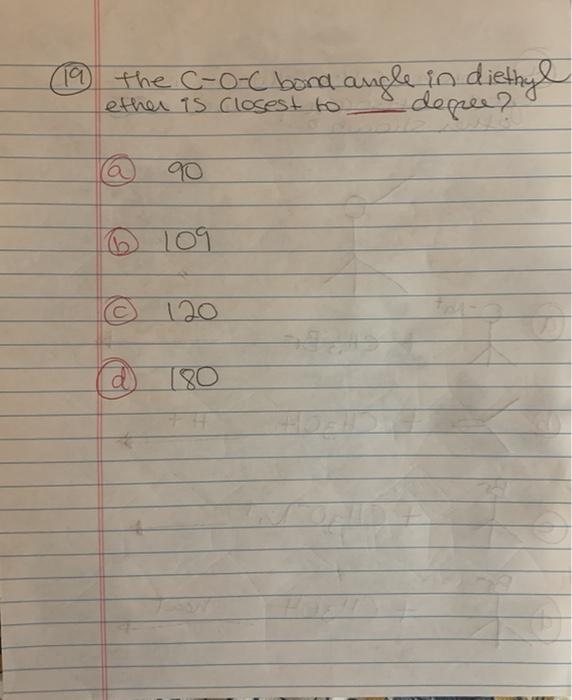 19 the C-O-C bond angle in diethyl
ether is closest to ___ degree?
a 90
b 109
c 120
d 180